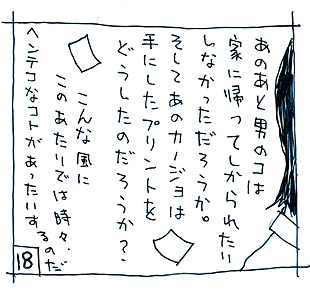 あのあと男のコは
家に帰ってしかられたり
しなかっただろうか。
そしてあのカージョは
手にしたプリントを
どうしたのだろうか?
こんな風に
このあたりでは時々、
ヘンテコなコトがあったいするのだ
18